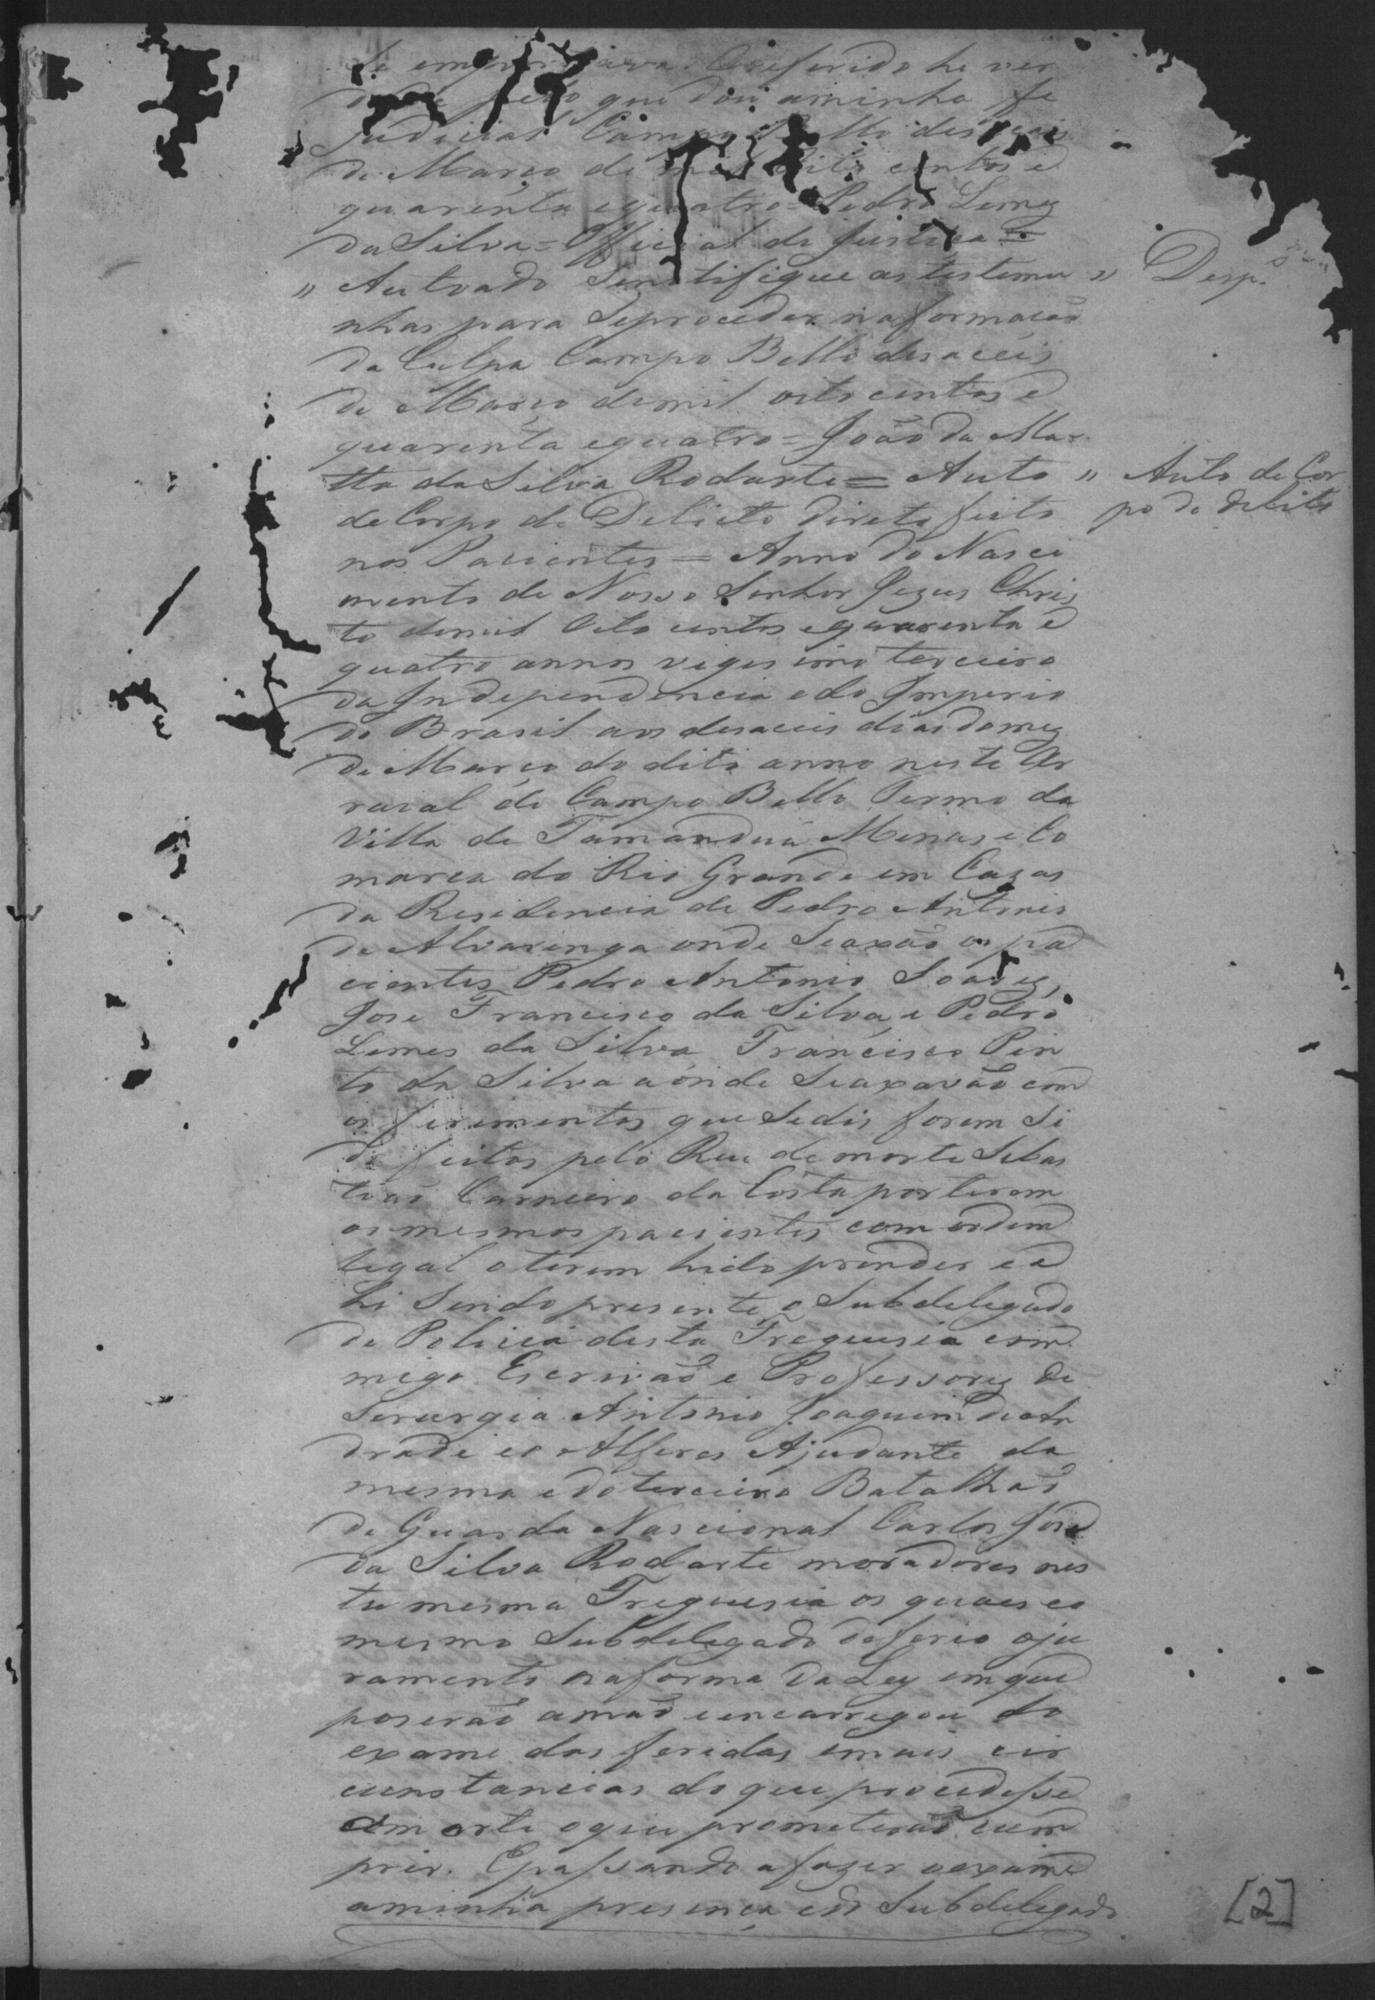 de em. O referido he ver
dade pelo que dou aminha fe
judicial Campo Bello desaceis
de Março de mil oito centos e
quarenta equatro = Pedro Lemez
da Silva = Official de Justica =
" Autoado Senotifique as testemu " Desp.º
nhas para Seproceder naformação
da Culpa Campo Bello desaceis
de Março demil oito centos e
quarenta equatro = João da Ma
tta da Silva Rodarte = Auto " Auto de Cor
de Corpo de Delicto direto feito po de delito
nos Pacientes = Anno do Nasci
mento de Nosso Senhor Jezus Chris
to demil Oito centos equarenta e
quatro annos vigesimo terceiro
da Independencia edo Imperio
do Brasil aos desaceis dias domez
de Março do dito anno neste Ar
raial do Campo Bello Termo da
Villa de Tamanduá Minas e Co
marca do Rio Grande em Cazas
da Residencia de Pedro Antonio
de Alvarenga onde Seaxão os pa
cientes Pedro Antonio Soares,
Jose Francisco da Silva, e Pedro
Lemes da Silva, Francisco Pin
to da Silva aonde Seaxavão com
os ferimentos que Sedis forem Si
do feitos pelo Reu de morte Sebas
tiao Carneiro da Costa por terem
os mesmos pacientes com ordem
legal o terem hido prender e a
hi Sendo presente o Subdelegado
de Policia desta Freguesia com
migo Escrivão e Professores de
Serurgia Antonio Joaquim de An
drade e o Alferes Ajudante da
mesma e do terceiro Batalhão
de Guarda Nascional Carlos Jose
da Silva Rodarte moradores nes
ta mesma Freguesia os quaes eo
mesmo Subdelegado deferio oju
ramento naforma da Ley em que
poserão amão eencarregou do
exame das feridas emais cir
cunstancias do que procedesse
amorte oque prometerão cum
prir. Epassando afazer oexame
aminha presença edo Subdelegado
[2]